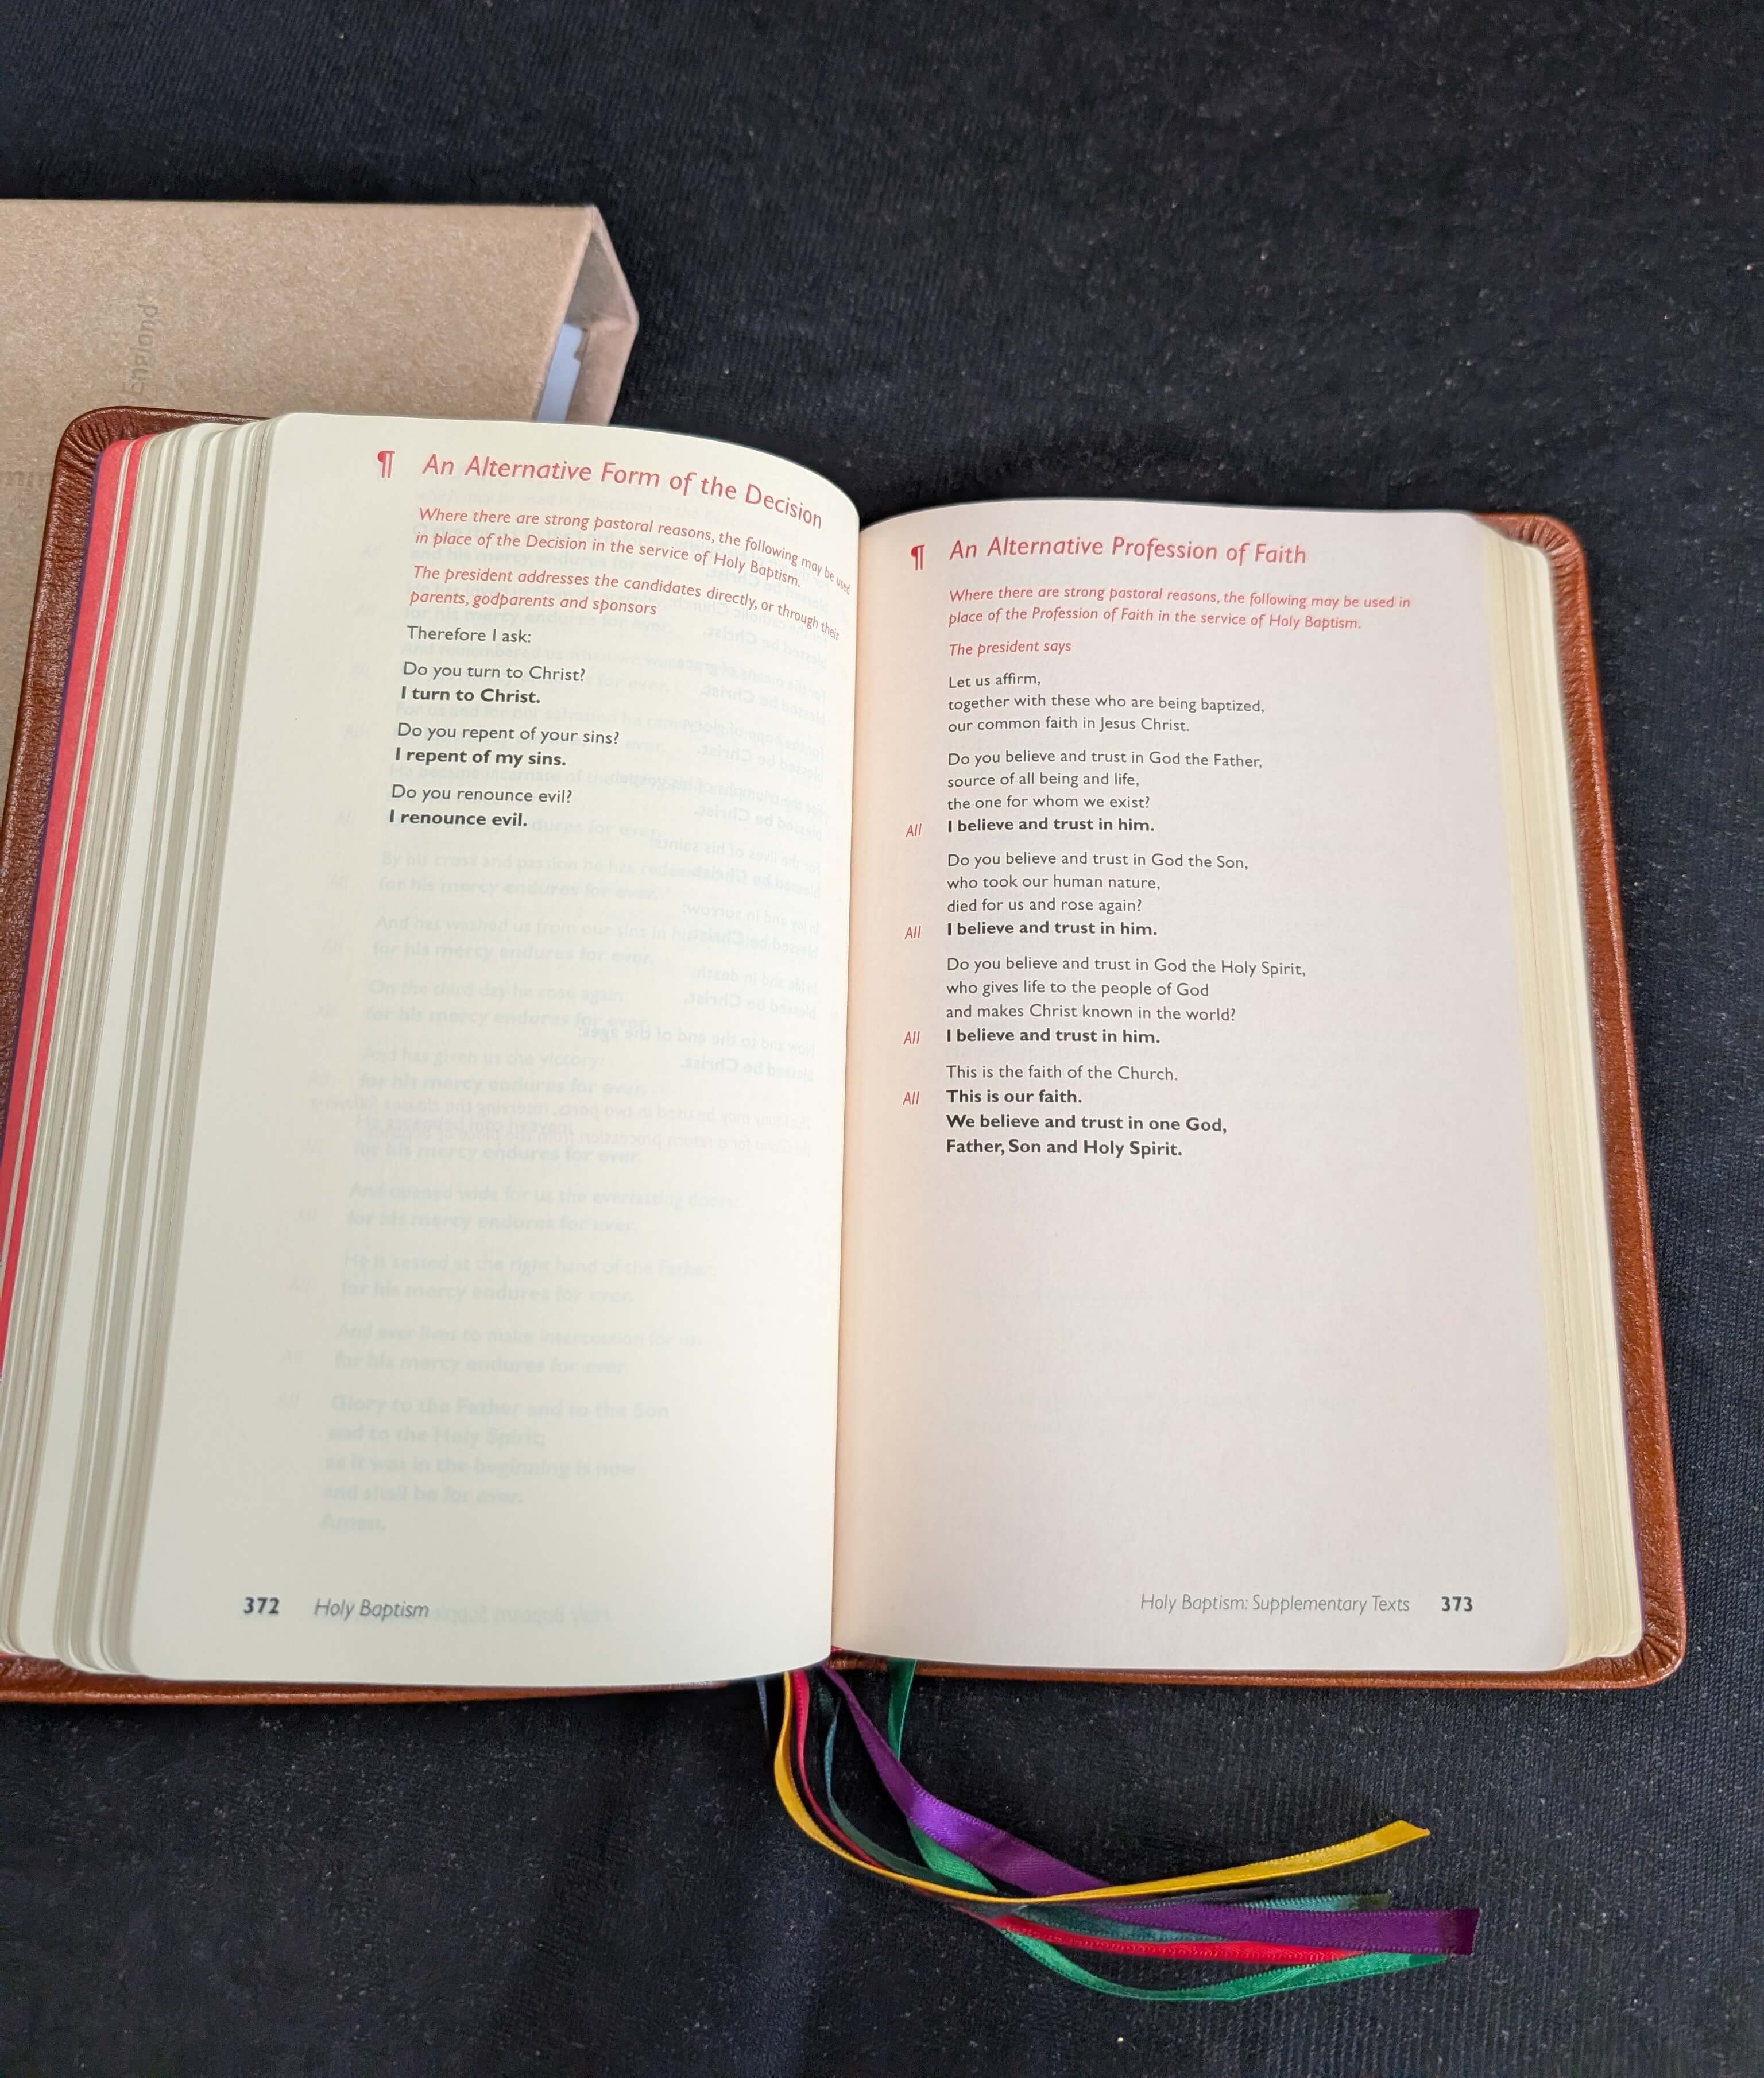 England
¶ An Alternative Form of the Decision
Where there are strong pastoral reasons, the following may be used
in place of the Decision in the service of Holy Baptism.
The president addresses the candidates directly, or through their
parents, godparents and sponsors
Therefore I ask:
Do you turn to Christ?
I turn to Christ.
Do you repent of your sins?
I repent of my sins.
Do you renounce evil?
I renounce evil.
372 Holy Baptism
¶ An Alternative Profession of Faith
Where there are strong pastoral reasons, the following may be used in
place of the Profession of Faith in the service of Holy Baptism.
The president says
Let us affirm,
together with these who are being baptized,
our common faith in Jesus Christ.
Do you believe and trust in God the Father,
source of all being and life,
the one for whom we exist?
All I believe and trust in him.
Do you believe and trust in God the Son,
who took our human nature,
died for us and rose again?
All I believe and trust in him.
Do you believe and trust in God the Holy Spirit,
who gives life to the people of God
and makes Christ known in the world?
All I believe and trust in him.
This is the faith of the Church.
All This is our faith.
We believe and trust in one God,
Father, Son and Holy Spirit.
Holy Baptism: Supplementary Texts 373